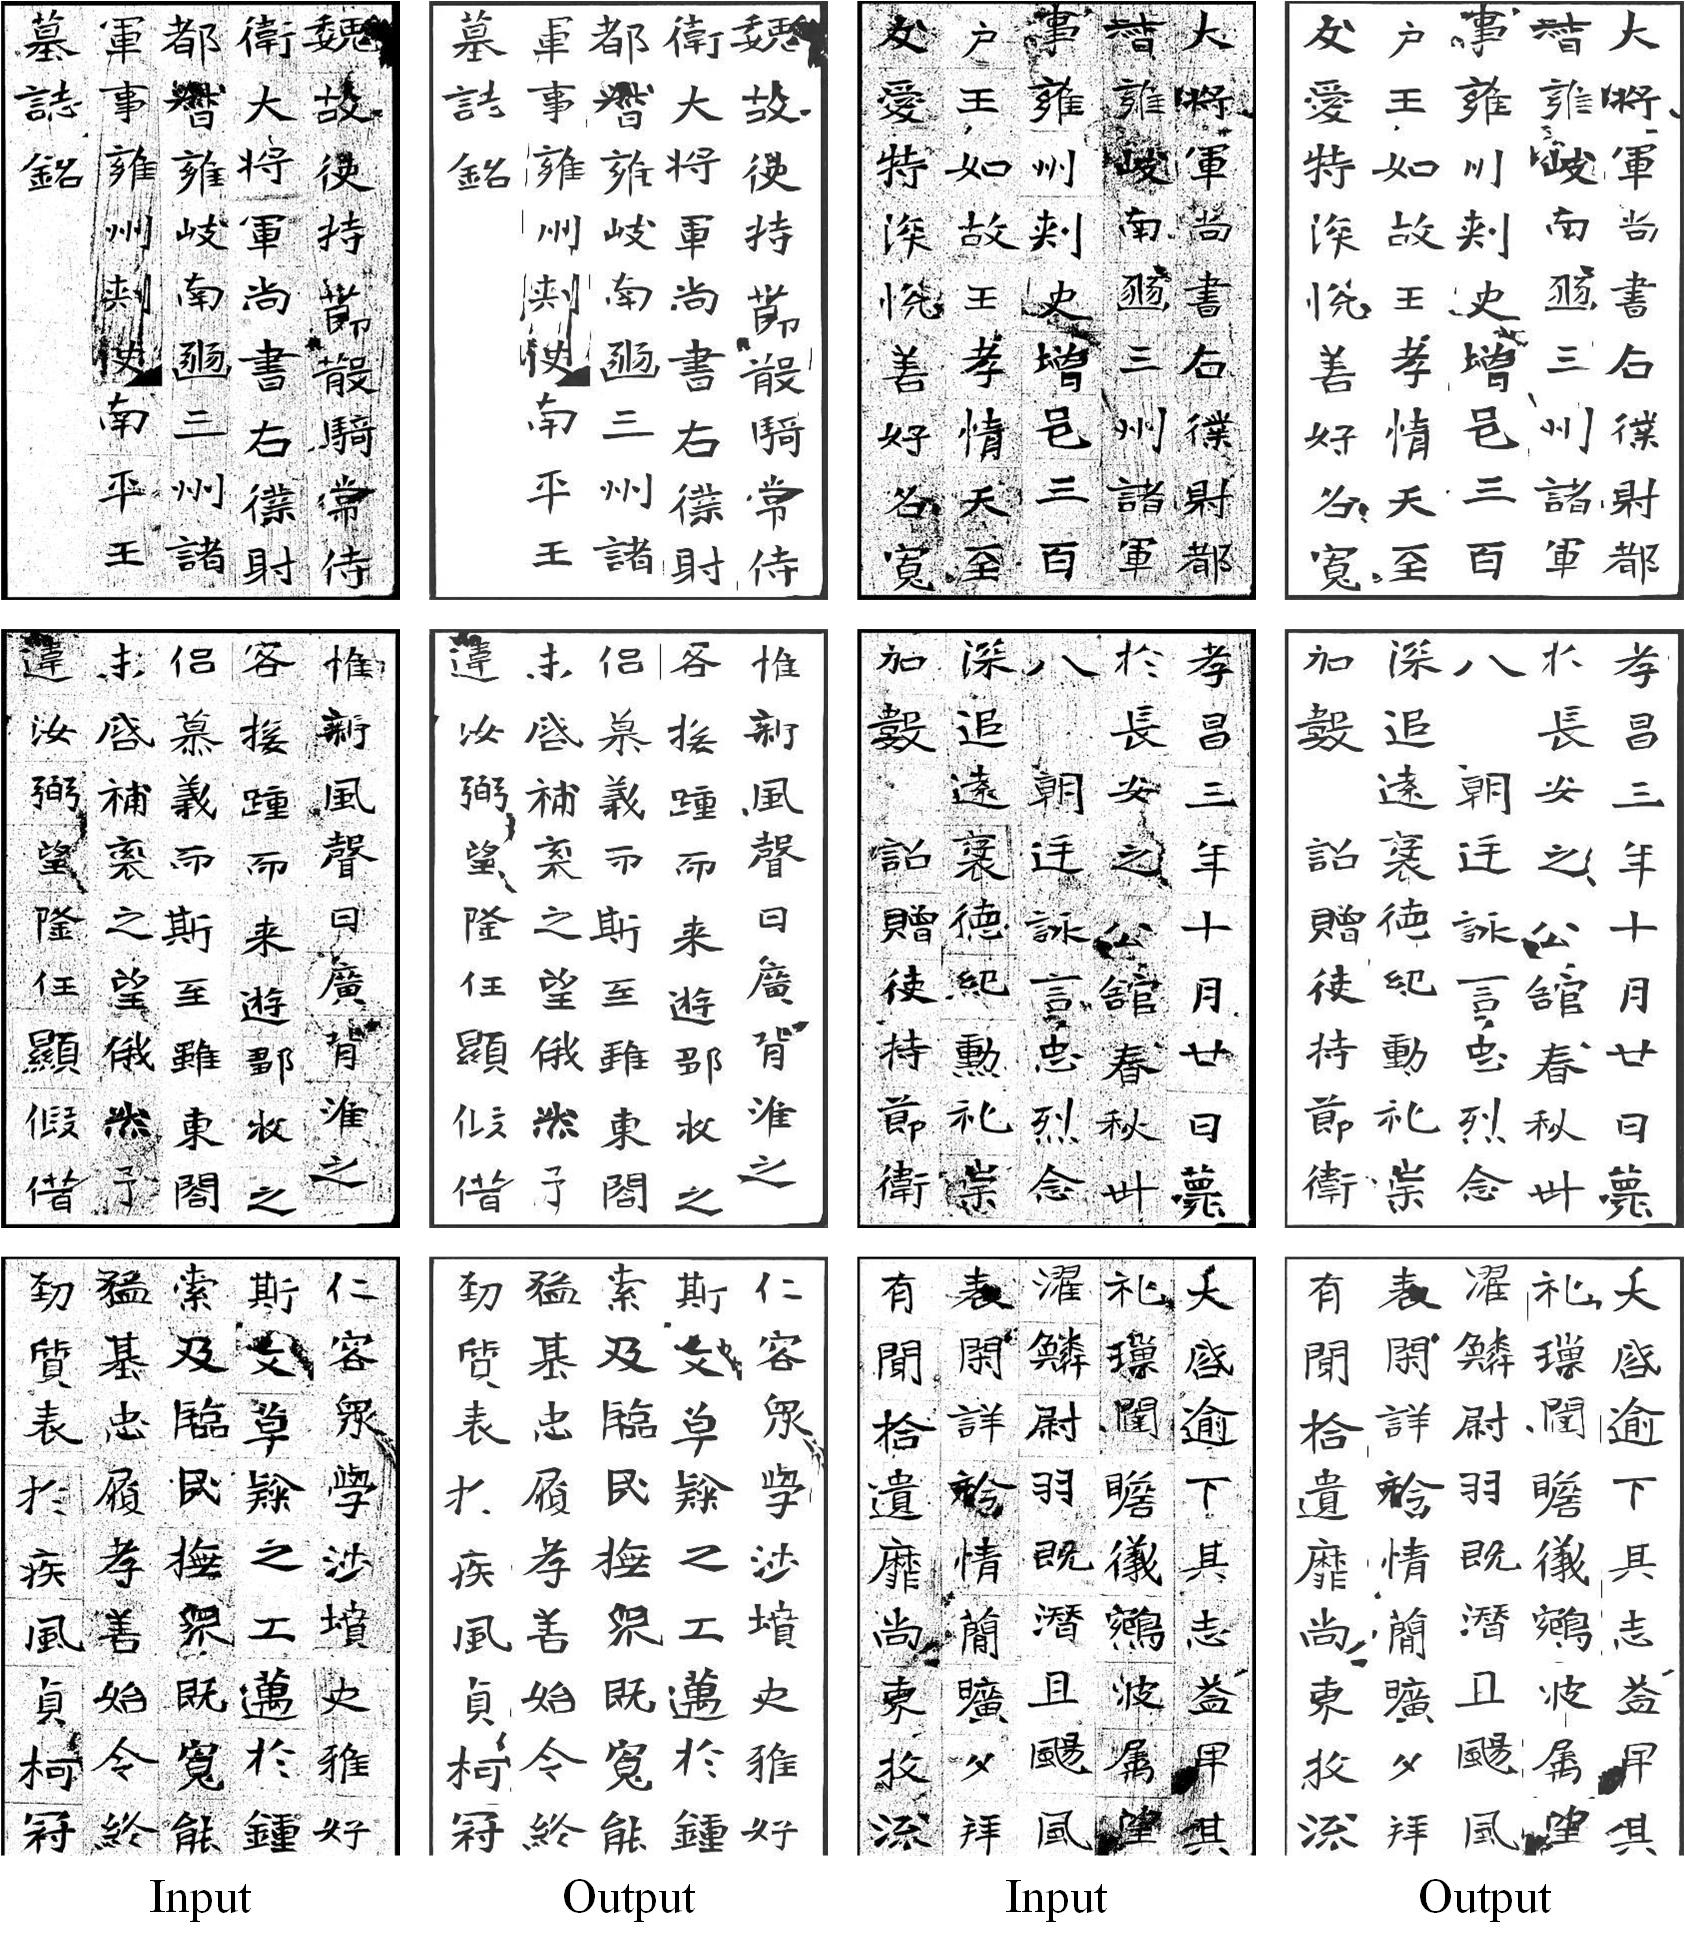 魏故使持節散騎常侍
衛大将軍尚書右僕射
都督雍岐南豳三州諸
軍事雍州刺史南平王
墓誌銘
魏故使持節散騎常侍
衛大将軍尚書右僕射
都督雍岐南豳三州諸
軍事雍州刺史南平王
墓誌銘
大将軍尚書右僕射都
督雍岐南豳三州諸軍
事雍州刺史增邑三百
户王如故王孝情天至
友愛特深悦善好名寬
大将軍尚書右僕射都
督雍岐南豳三州諸軍
事雍州刺史增邑三百
户王如故王孝情天至
友愛特深悦善好名寬
惟新風聲曰廣背淮之
客接踵而来遊鄒牧之
侶慕義而斯至雖東閤
未啓補衮之望俄然予
違汝弼望隆任顯假借
惟新風聲曰廣背淮之
客接踵而来遊鄒牧之
侶慕義而斯至雖東閤
未啓補衮之望俄然予
違汝弼望隆任顯假借
孝昌三年十月廿日薨
於長安之公館春秋卅
八 朝廷詠言忠烈念
深追遠褒德紀勳礼崇
加數 詔贈使持節衛
孝昌三年十月廿日薨
於長安之公館春秋卅
八 朝廷詠言忠烈念
深追遠褒德紀勳礼崇
加數 詔贈使持節衛
仁容眾學涉墳史雅好
斯文草隸之工邁於鍾
索及臨民撫眾既寬能
猛基忠履孝善始令終
勁質表於疾風貞柯冠
仁容眾學涉墳史雅好
斯文草隸之工邁於鍾
索及臨民撫眾既寬能
猛基忠履孝善始令終
勁質表於疾風貞柯冠
天啓逾下其志益卑其
礼瞻儀鵷属望
濯鱗尉羽既潛且颺風
表閑詳衿情蕳曠夕拜
有聞拾遺靡尚東牧流
天啓逾下其志益卑其
礼瞻儀鵷属望
濯鱗尉羽既潛且颺風
表閑詳衿情蕳曠夕拜
有聞拾遺靡尚東牧流
Input
Output
Input
Output